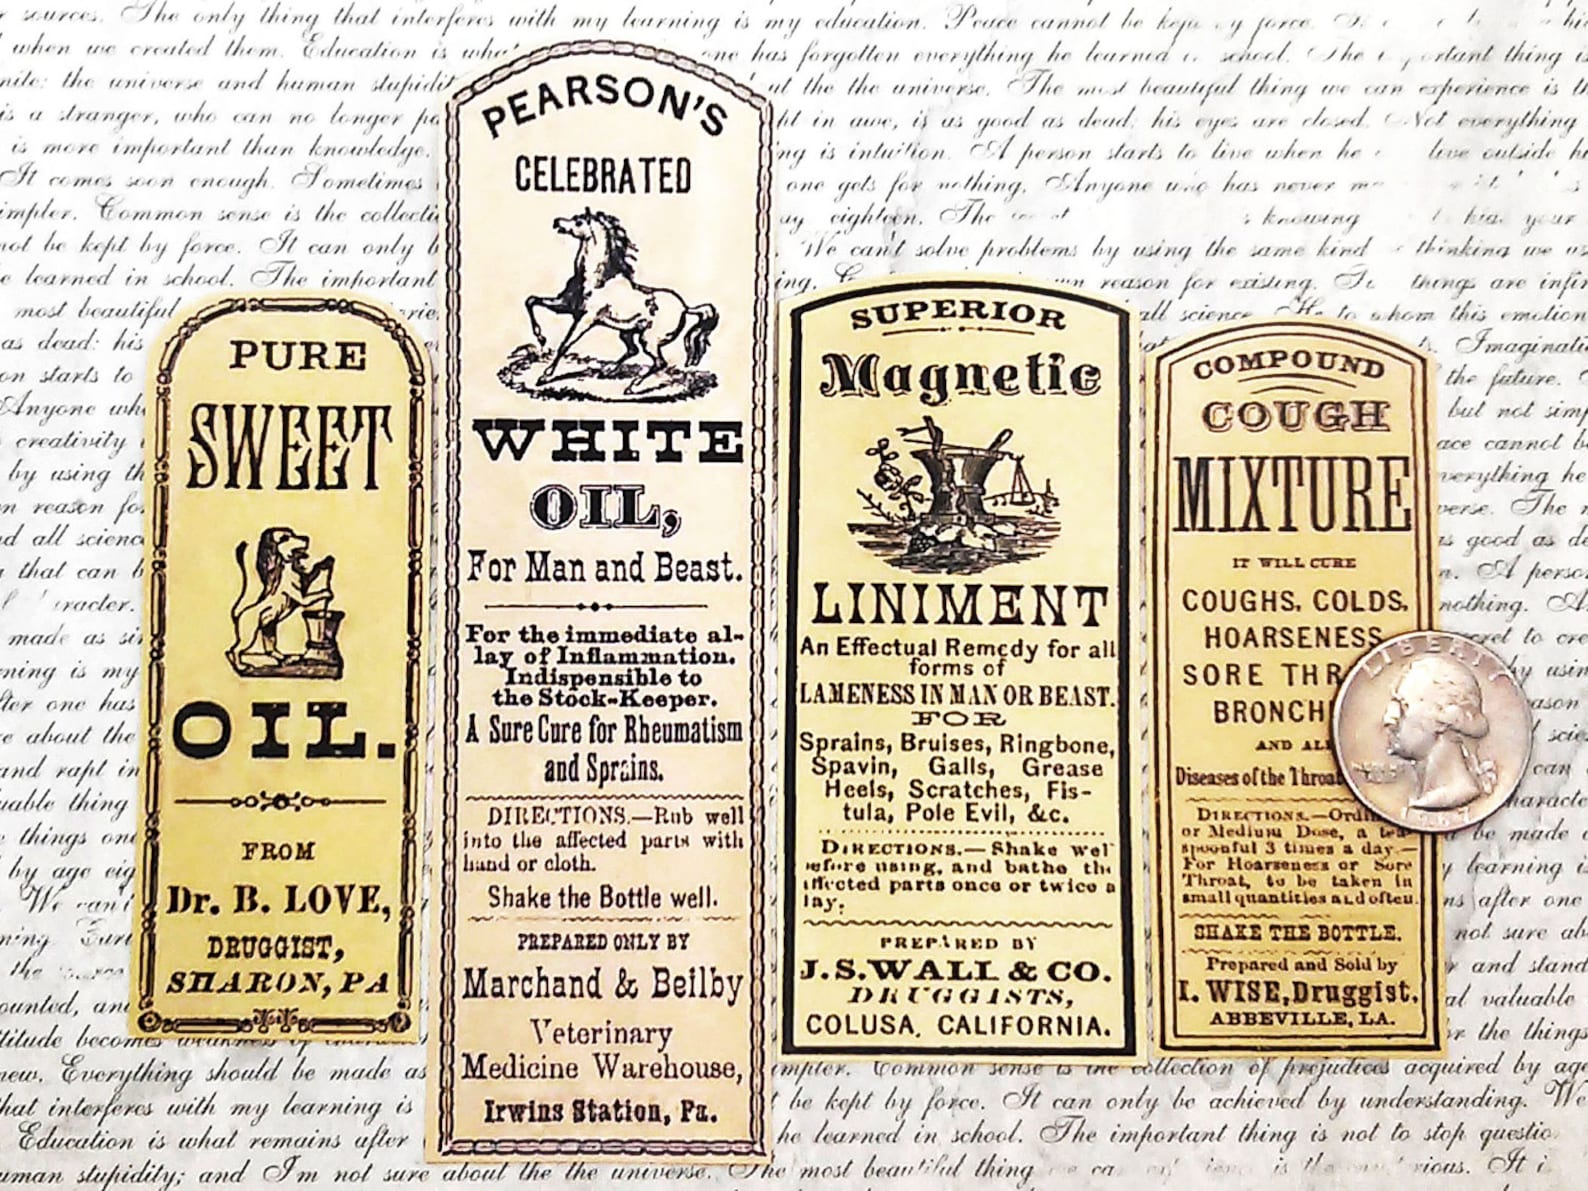 PURE
SWEET
OIL.
FROM
Dr. B. LOVE,
DRUGGIST,
SHARON, PA
PEARSON'S
CELEBRATED
WHITE
OIL,
For Man and Beast.
For the immediate al-
lay of Inflammation.
Indispensible to
the Stock-Keeper.
A Sure Cure for Rheumatism
and Sprains.
DIRECTIONS.—Rub well
into the affected parts with
hand or cloth.
Shake the Bottle well.
PREPARED ONLY BY
Marchand & Beilby
Veterinary
Medicine Warehouse,
Irwins Station, Pa.
SUPERIOR
Magnetic
LINIMENT
An Effectual Remedy for all
forms of
LAMENESS IN MAN OR BEAST.
FOR
Sprains, Bruises, Ringbone,
Spavin, Galls, Grease
Heels, Scratches, Fis-
tula, Pole Evil, &c.
DIRECTIONS.—Shake wel
before using, and bathe the
affected parts once or twice a
lay.
PREPARED BY
J.S.WALL & CO.
DRUGGISTS,
COLUSA, CALIFORNIA.
COMPOUND
COUGH
MIXTURE
IT WILL CURE
COUGHS, COLDS,
HOARSENESS
SORE THR
BRONCH
AND ALL
Diseases of the Throat
DIRECTIONS.—Ordi
or Medium Dose, a tea-
spoonful 3 times a day.—
For Hoarseness or Sore
Throat, to be taken in
small quantities and often.
SHAKE THE BOTTLE.
Prepared and Sold by
I. WISE, Druggist.
ABBEVILLE, LA.
LIBERTY
1967
sources. The only thing that interferes with my learning is my education. Peace cannot be kept by force.
when we created them. Education is what one has forgotten everything he learned in school. The important thing is
the universe and human stupidity the the universe. The most beautiful thing we can experience is
is a stranger, who can no longer in awe, is as good as dead: his eyes are closed. Not everything
is more important than knowledge. is intuition. A person starts to live when he live outside
It comes soon enough. Sometimes one gets for nothing. Anyone who has never
Common sense is the eighteen. The knowing your
not be kept by force. It can only We can't solve problems by using the same kind thinking we
learned in school. The important reason for existing. things are
most beautiful all science. to whom this emotion
as dead: his Imagination
starts to the future.
Anyone but not
creativity cannot
by using everything he
reason The
all science good as
that can A person
nothing.
made as to
is my using
one has reason
about the
and rapt in can
thing character
things be made
by age learning is
We can't after one
not sure
the and
and valuable
becomes the things
new. Everything should be made as Common sense is the collection of prejudices acquired by age
that interferes with my learning is be kept by force. It can only be achieved by understanding. We
Education is what remains after he learned in school. The important thing is not to stop
human stupidity; and I'm not sure about the the universe. The most beautiful thing It